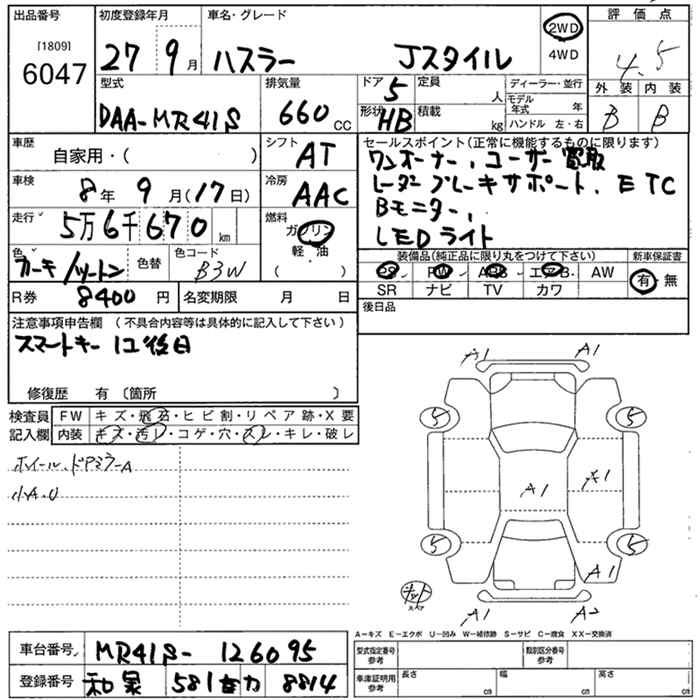 出品番号 初度登録年月 車名・グレード 評価点
[1809]
6047 27 9月 ハスラー Jスタイル 2WD 4WD 4.5
型式 排気量 ドア 定員 ディーラー・並行 外装 内装
DAA-MR41S 660cc 5 人 モデル年式 年 B B
形状 積載 HB kg ハンドル 左・右
車歴 シフト セールスポイント(正常に機能するものに限ります)
自家用・( ) AT ワンオーナー、ユーザー買取
車検 冷房 レーダーブレーキサポート、ETC
8年9月(17日) AAC Bモニター、
走行 燃料 LEDライト
5万6千670km ガソリン
色 色替 色コード 軽・油
カーキ/ツートン B3W ( )
装備品(純正品に限り丸をつけて下さい) 新車保証書
PS PW ABS エアB AW 有・無
SR ナビ TV カワ
R券 8400円 名変期限 月 日 後日品
注意事項申告欄 (不具合内容等は具体的に記入して下さい)
スマートキー 1コ後日
修復歴 有 〔箇所 〕
検査員 FW キズ・飛石・ヒビ割・リペア跡・X要
記入欄 内装 キズ・汚レ・コゲ・穴・スレ・キレ・破レ
ホイール、ドアミラーA
小A.U
A1 A1
5 5
A1 A1
5 5
A1
A1 A2
A-キズ E-エクボ U-凹み W-補修跡 S-サビ C-腐食 XX-交換済
車台番号 MR41S-126095
登録番号 581 8814
型式指定番号 参考 類別区分番号 参考
車庫証明用 参考 長さ cm 幅 cm 高さ cm